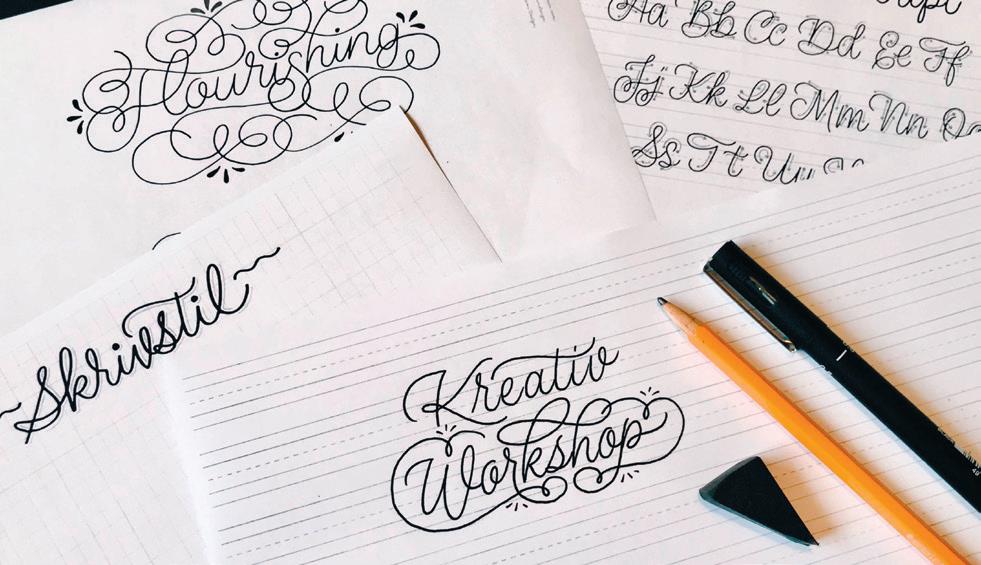 Flourishing
Aa Bb Cc Dd Ee Ff
Jj Kk Ll Mm Nn
Ss Tt Uu
Skrivstil
Kreativ
Workshop